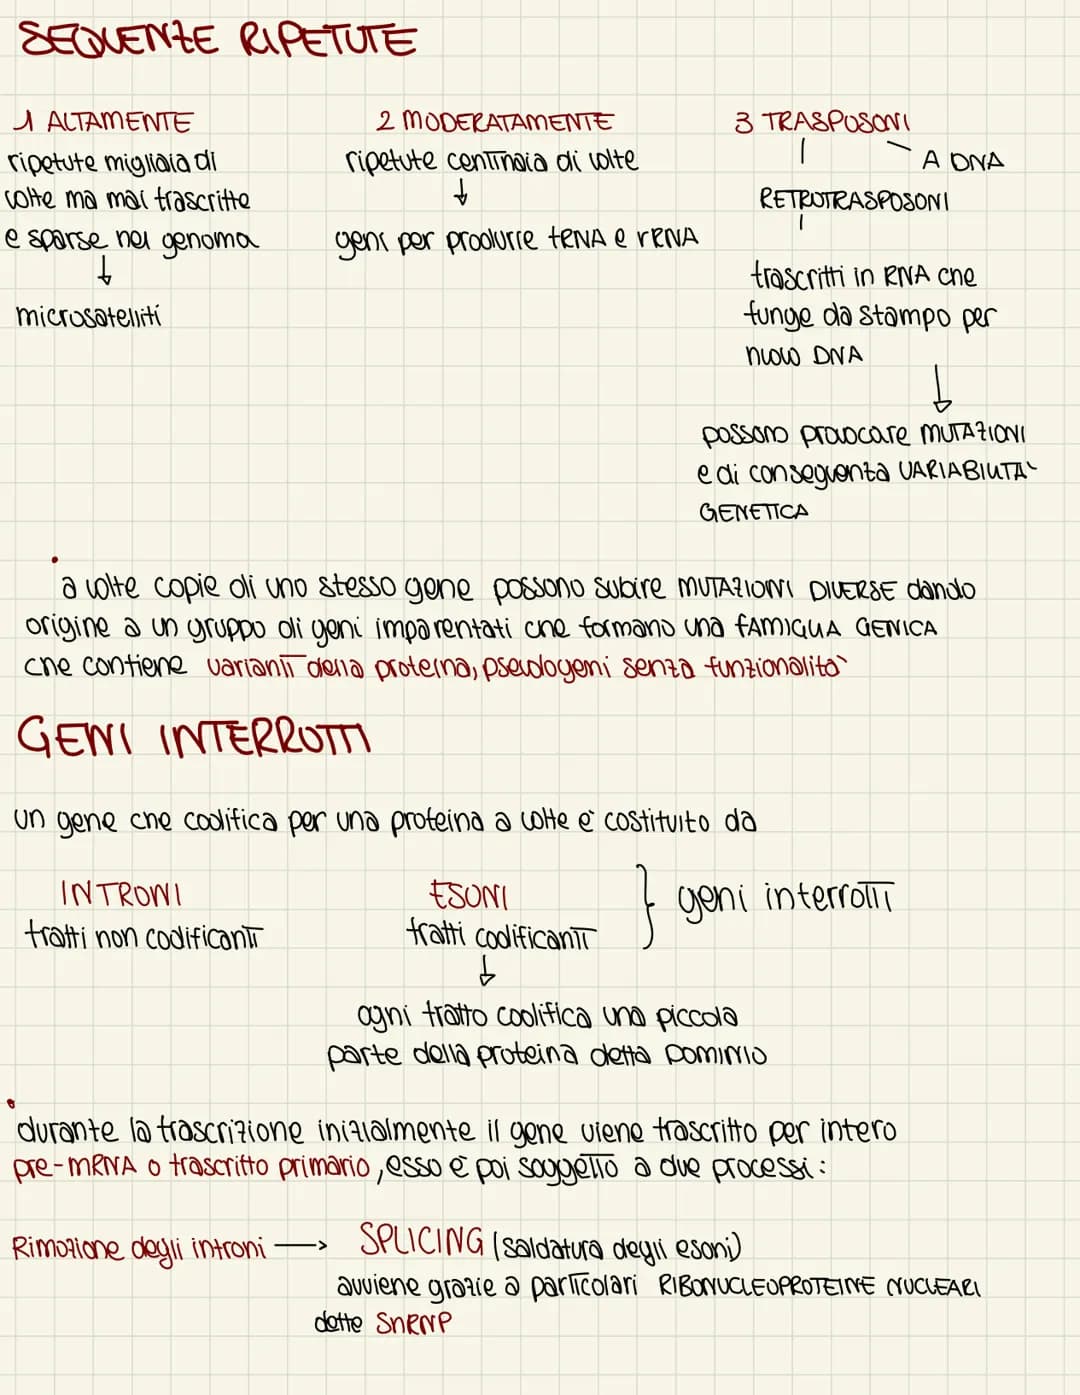 SEQUENZE RIPETUTE
1 ALTAMENTE
ripetute migliaia di
volte ma mai trascritte
e sparse nel genoma
↓
microsatelliti
2 MODERATAMENTE
ripetute centinaia di volte
↓
geni per produrre tRNA e rRNA
3 TRASPOSONI
A DNA
RETROTRASPOSONI
trascritti in RNA che
funge da stampo per
nuovo DNA
↓
possono provocare MUTAZIONI
e di conseguenza VARIABILITA'
GENETICA
• a volte copie di uno stesso gene possono subire MUTAZIONI DIVERSE dando
origine a un gruppo di geni imparentati che formano una FAMIGLIA GENICA
che contiene varianti della proteina, pseudogeni senza funzionalità
GENI INTERROTTI
un gene che codifica per una proteina a volte è costituito da
INTRONI
tratti non codificanti
ESONI
tratti codificanti
} geni interrotti
↓
ogni tratto codifica una piccola
parte della proteina detta DOMINIO
• durante la trascrizione inizialmente il gene viene trascritto per intero
pre-mRNA o trascritto primario, esso è poi soggetto a due processi:
Rimozione degli introni → SPLICING (saldatura degli esoni)
avviene grazie a particolari RIBONUCLEOPROTEINE NUCLEARI
dette SnRNP